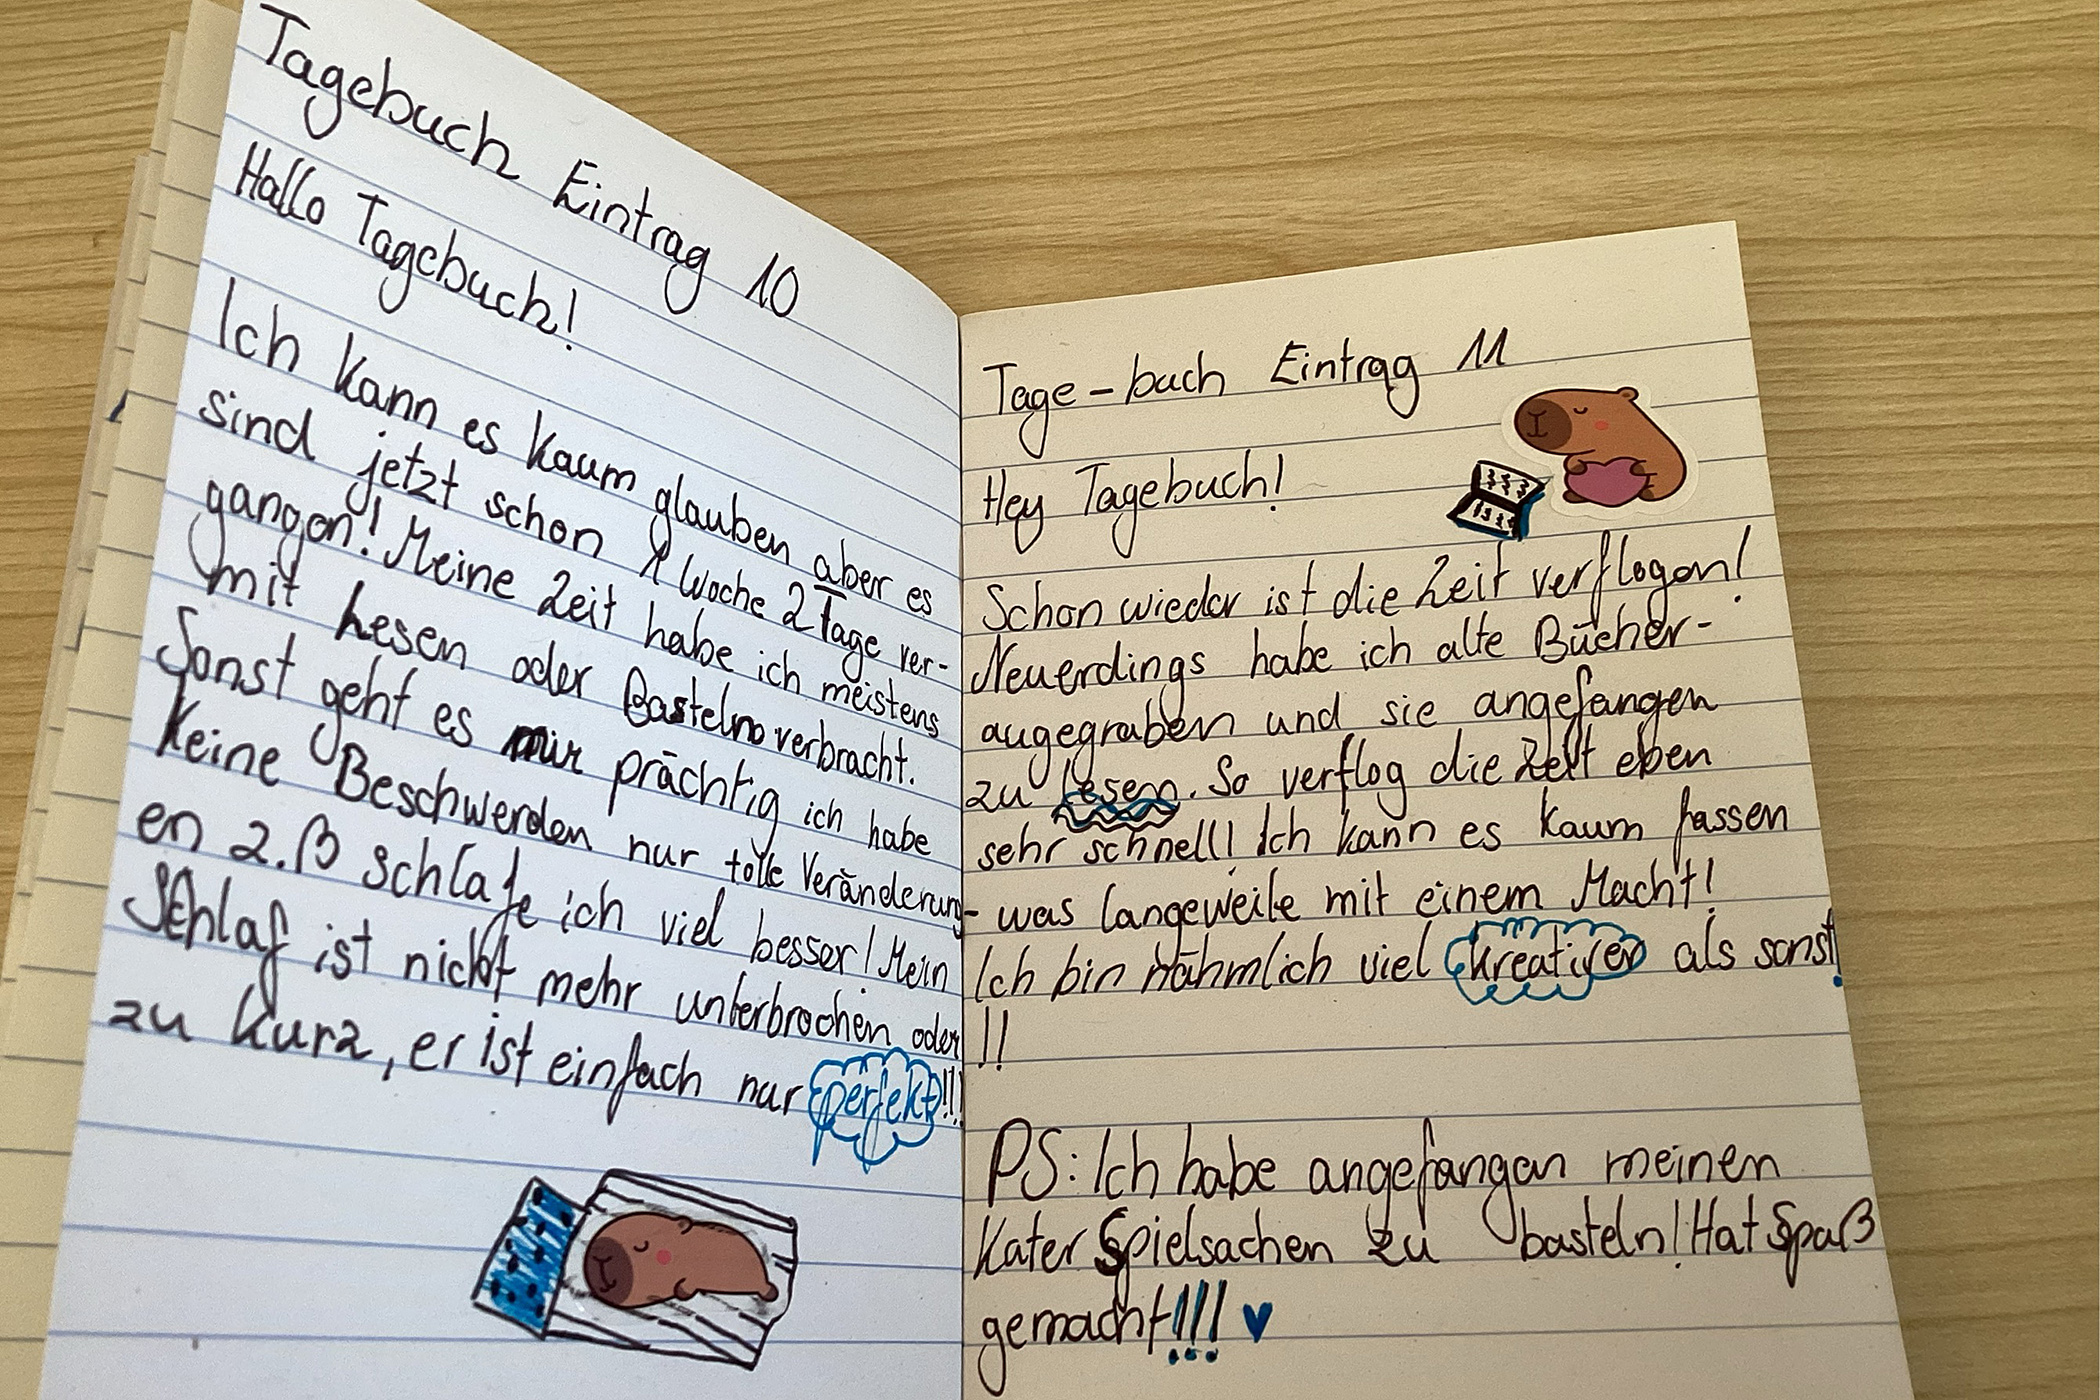 Tagebuch Eintrag 10
Hallo Tagebuch!
Ich kann es kaum glauben aber es
sind jetzt schon 1 Woche 2 Tage ver-
gangen! Meine Zeit habe ich meistens
mit Lesen oder Basteln verbracht.
Sonst geht es mir prächtig ich habe
keine Beschwerden nur tolle Veränderung-
en z.B schlafe ich viel besser! Mein
Schlaf ist nicht mehr unterbrochen oder
zu kurz, er ist einfach nur perfekt!!!
Tage-buch Eintrag 11
Hey Tagebuch!
Schon wieder ist die Zeit verflogen!
Neuerdings habe ich alte Bücher-
augegraben und sie angefangen
zu lesen. So verflog die Zeit eben
sehr schnell! Ich kann es kaum fassen
was langeweile mit einem Macht!
Ich bin nähmlich viel kreativer als sonst!
!!
PS: Ich habe angefangen meinen
Kater Spielsachen zu basteln! Hat Spaß
gemacht!!!